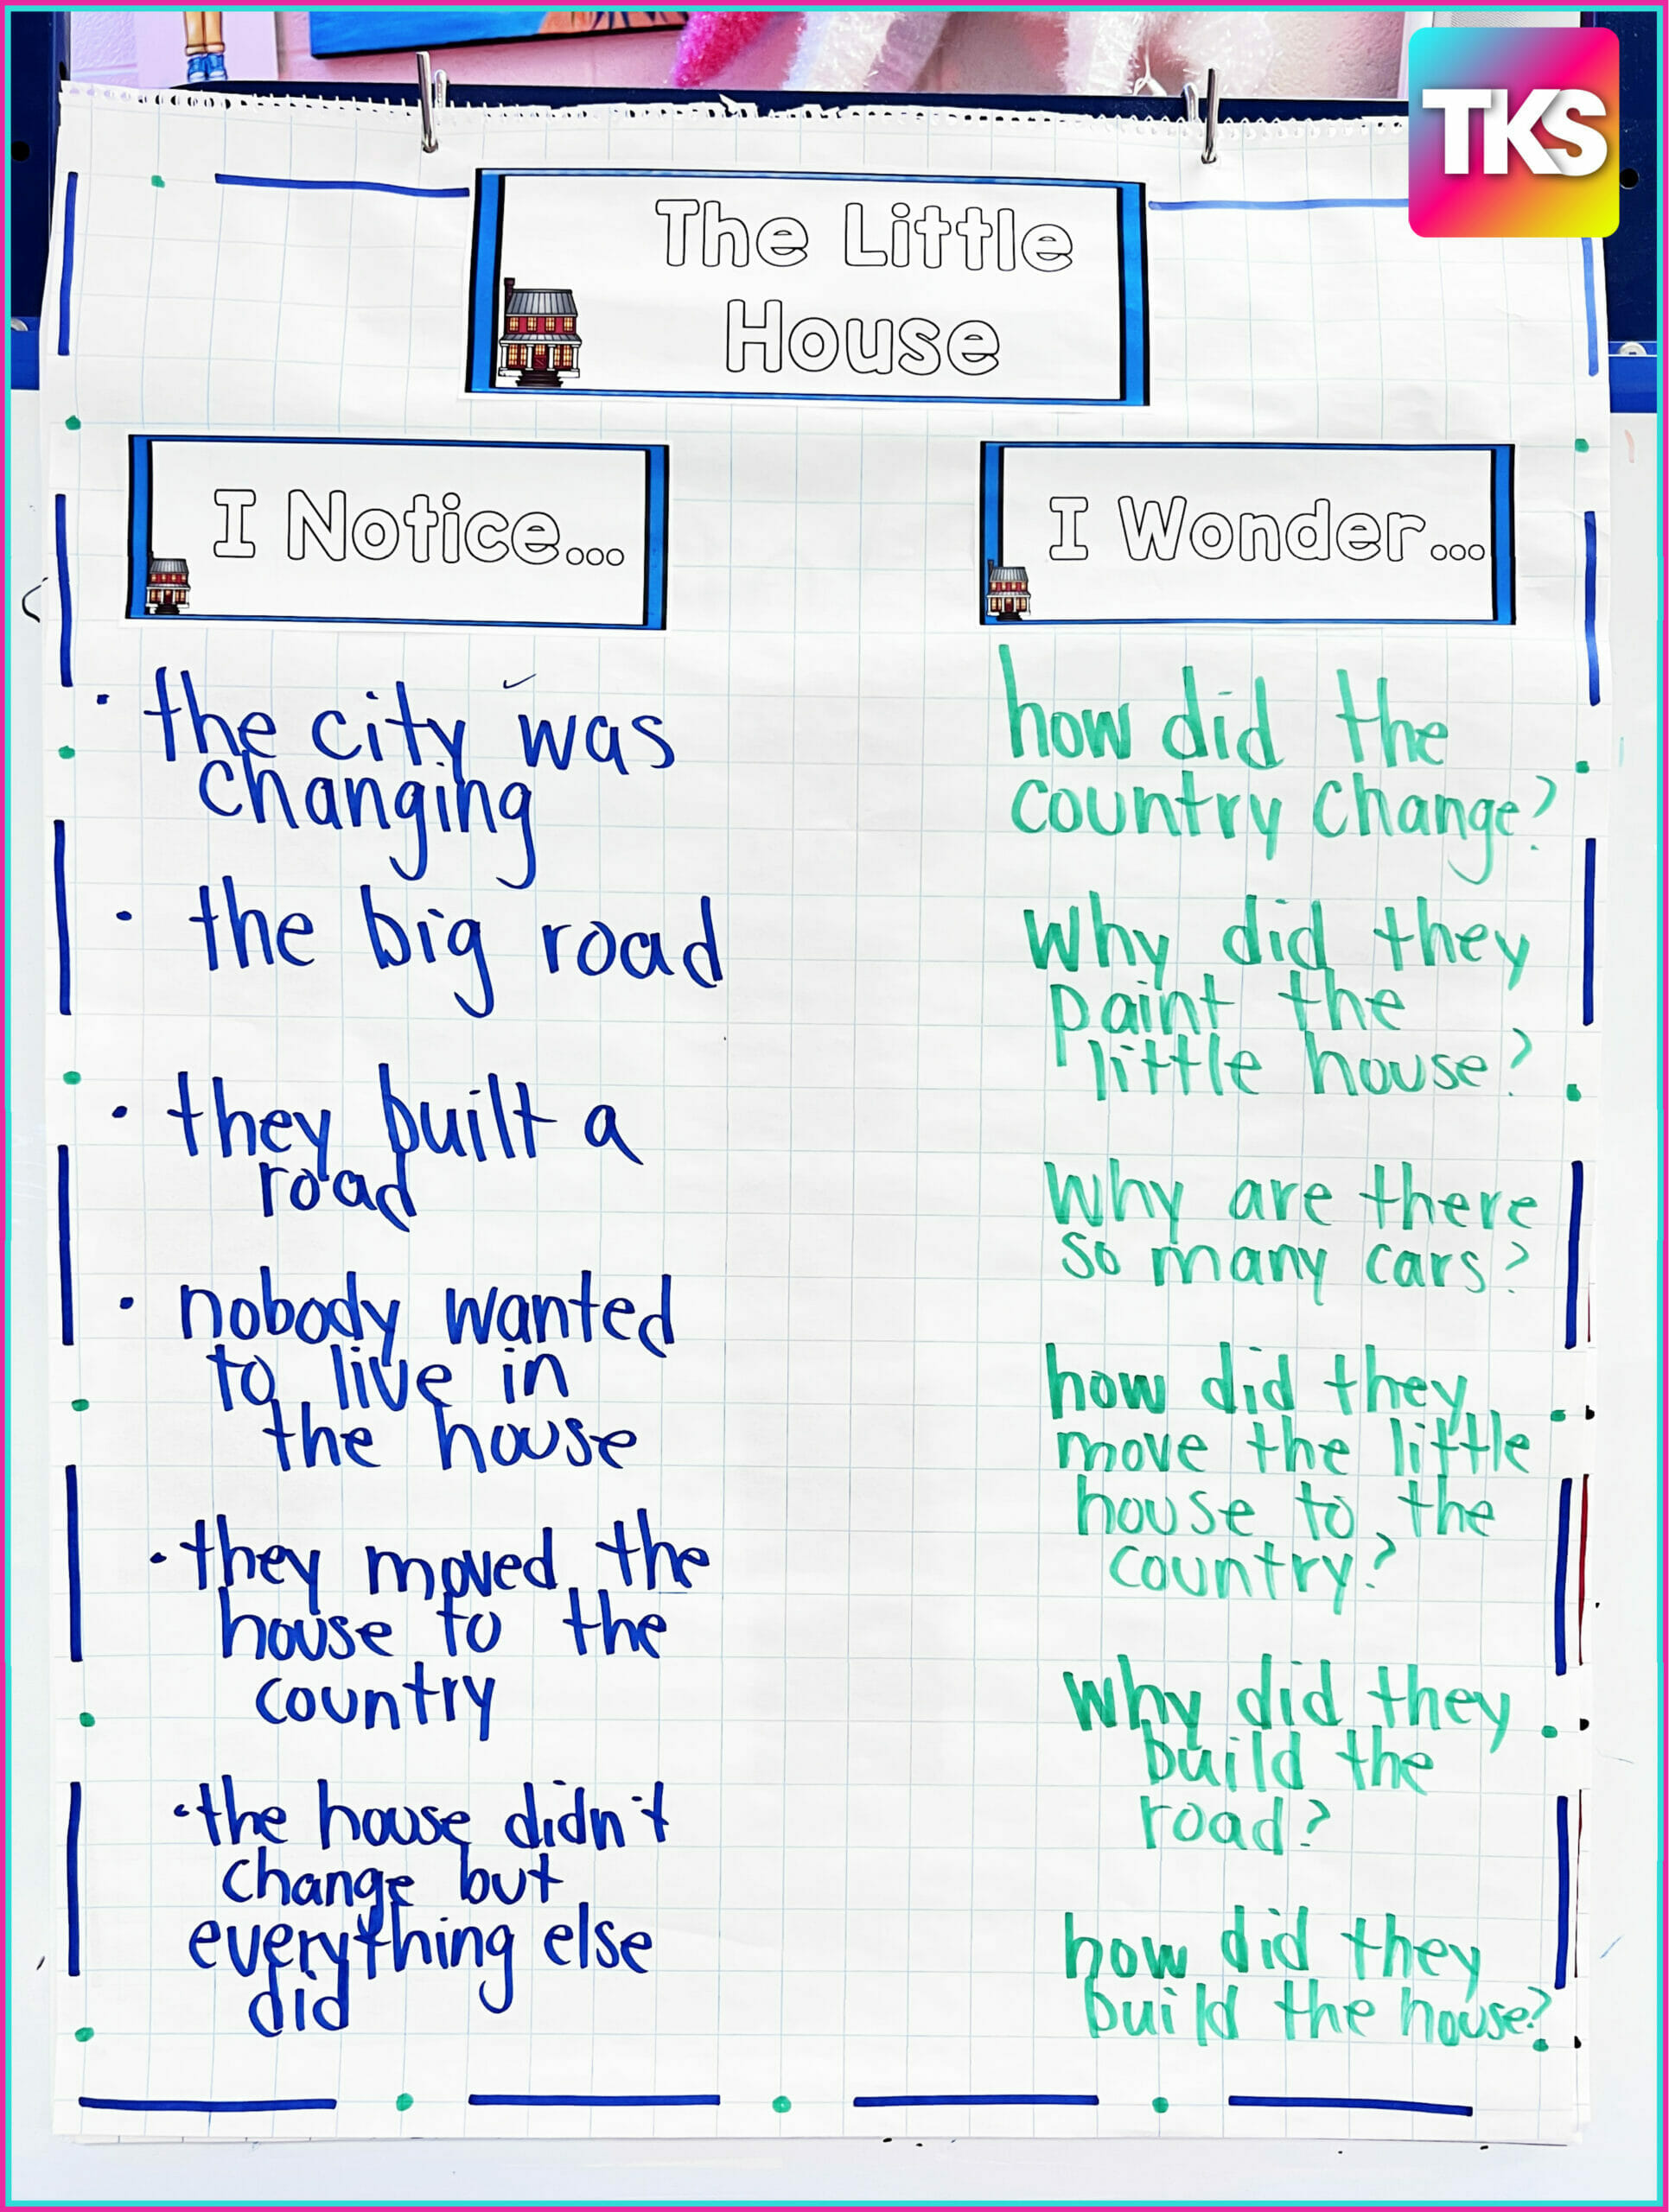 TKS
The Little
House
I Notice...
· the city was
changing
· the big road
· they built a
road
· nobody wanted
to live in
the house
· they moved the
house to the
country
· the house didn't
change but
everything else
did
I Wonder...
how did the
country change?
why did they
paint the
little house?
why are there
so many cars?
how did they
move the little
house to the
country?
why did they
build the
road?
how did they
build the house?